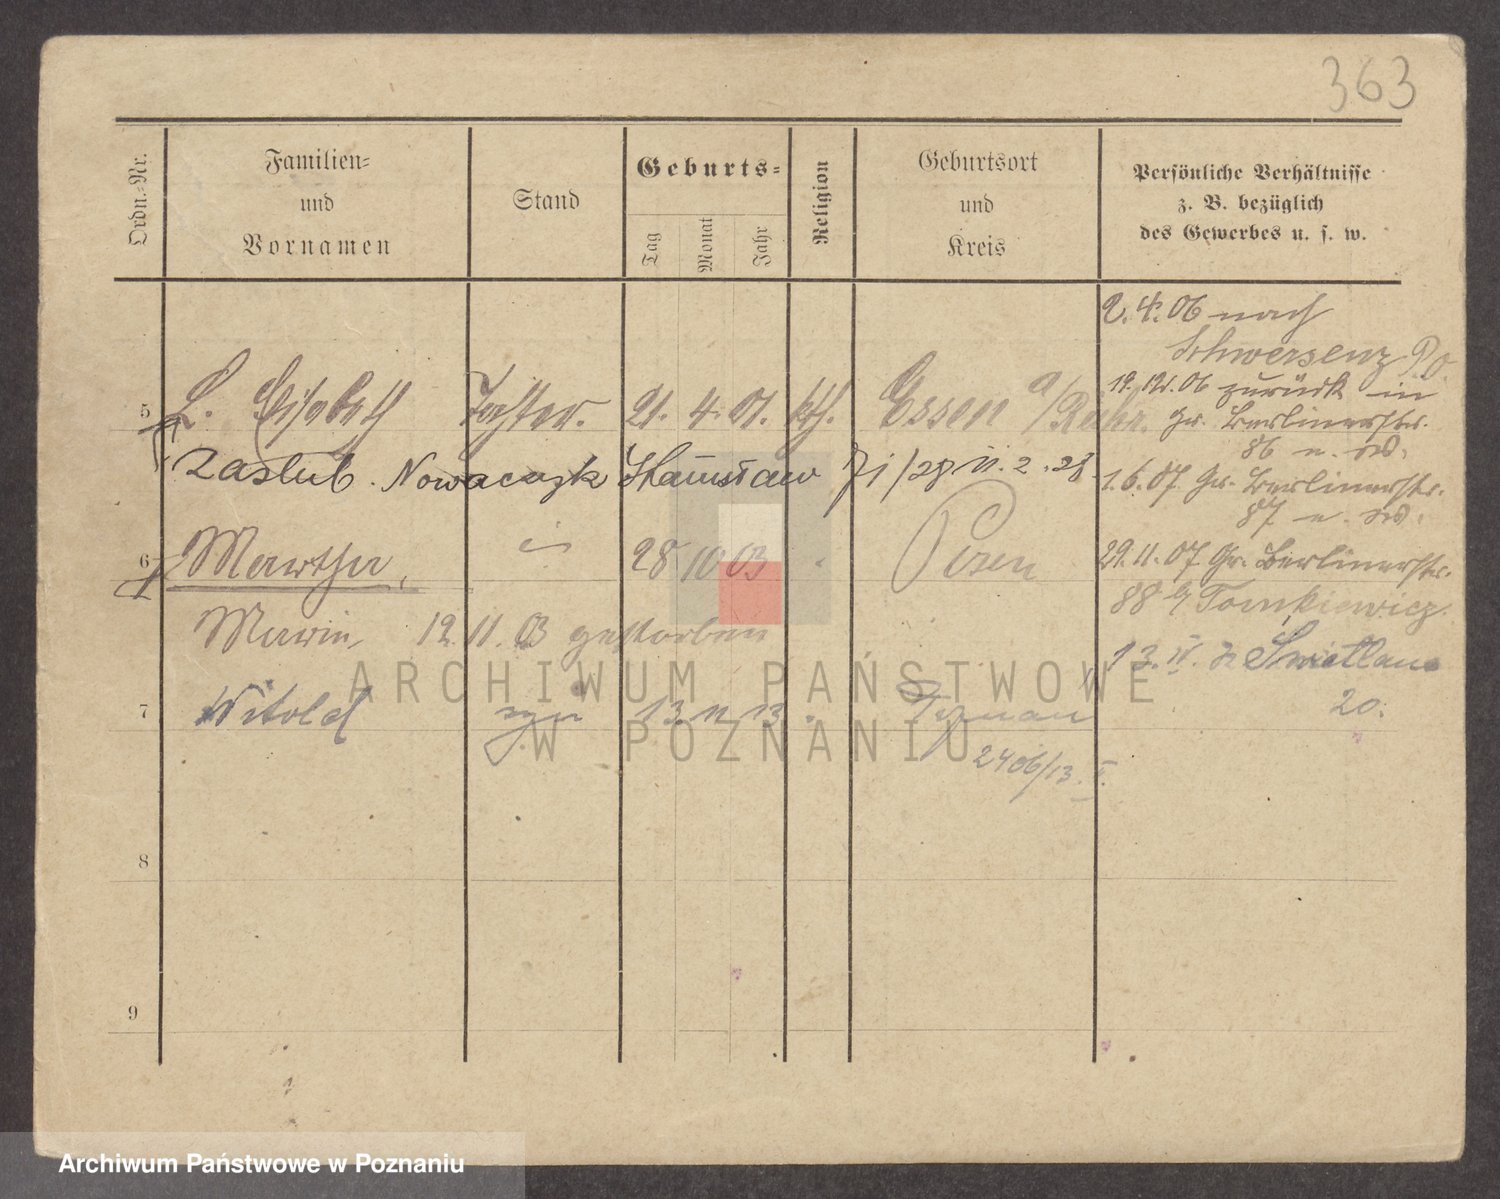 363
Ordn.-Nr.
Familien-
und
Vornamen
Stand
Geburts-
Tag
Monat
Jahr
Religion
Geburtsort
und
Kreis
Persönliche Verhältnisse
z. B. bezüglich
des Gewerbes u. s. w.
2. 4. 06 nach
Schwersenz P.O.
06 zurück in
5 L. Elisabeth Tochter. 21. 4. 01. kth. Essen a/Ruhr.
Gr. Berlinerstr.
86
Zaślub. Nowaczyk Stanisław 71/28 11. 2. 28
1.6.07. Gr. Berlinerstr.
87
6 Martha, 28 10 03 " Posen
29.11.07 Gr. Berlinerstr.
88 Tomkiewicz
Marie 12. 11. 03 gestorben
13. IV. Swietlana
20.
7 Witold syn 13. 11 13. " Poznań
2406/13. I.
8
9
ARCHIWUM PAŃSTWOWE
W POZNANIU
Archiwum Państwowe w Poznaniu